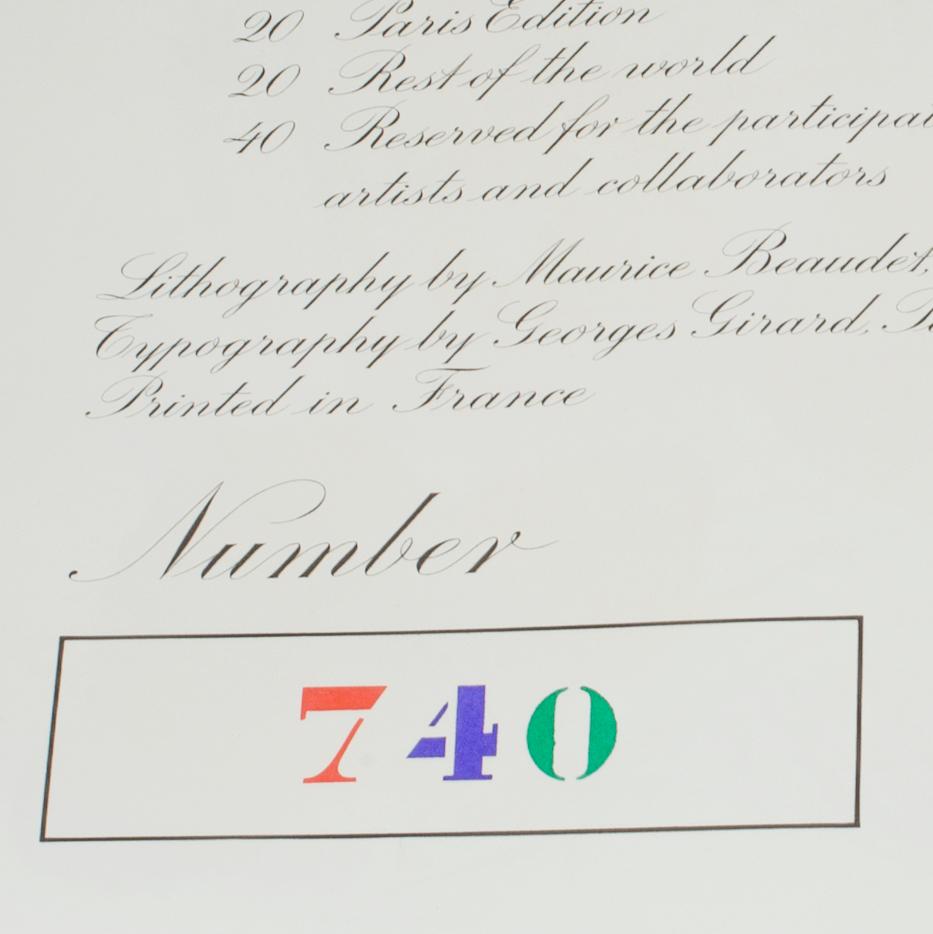 20 Paris Edition
20 Rest of the world
40 Reserved for the
artists and collaborators
Lithography by Maurice Beaudet,
Typography by Georges Girard,
Printed in France
Number
740